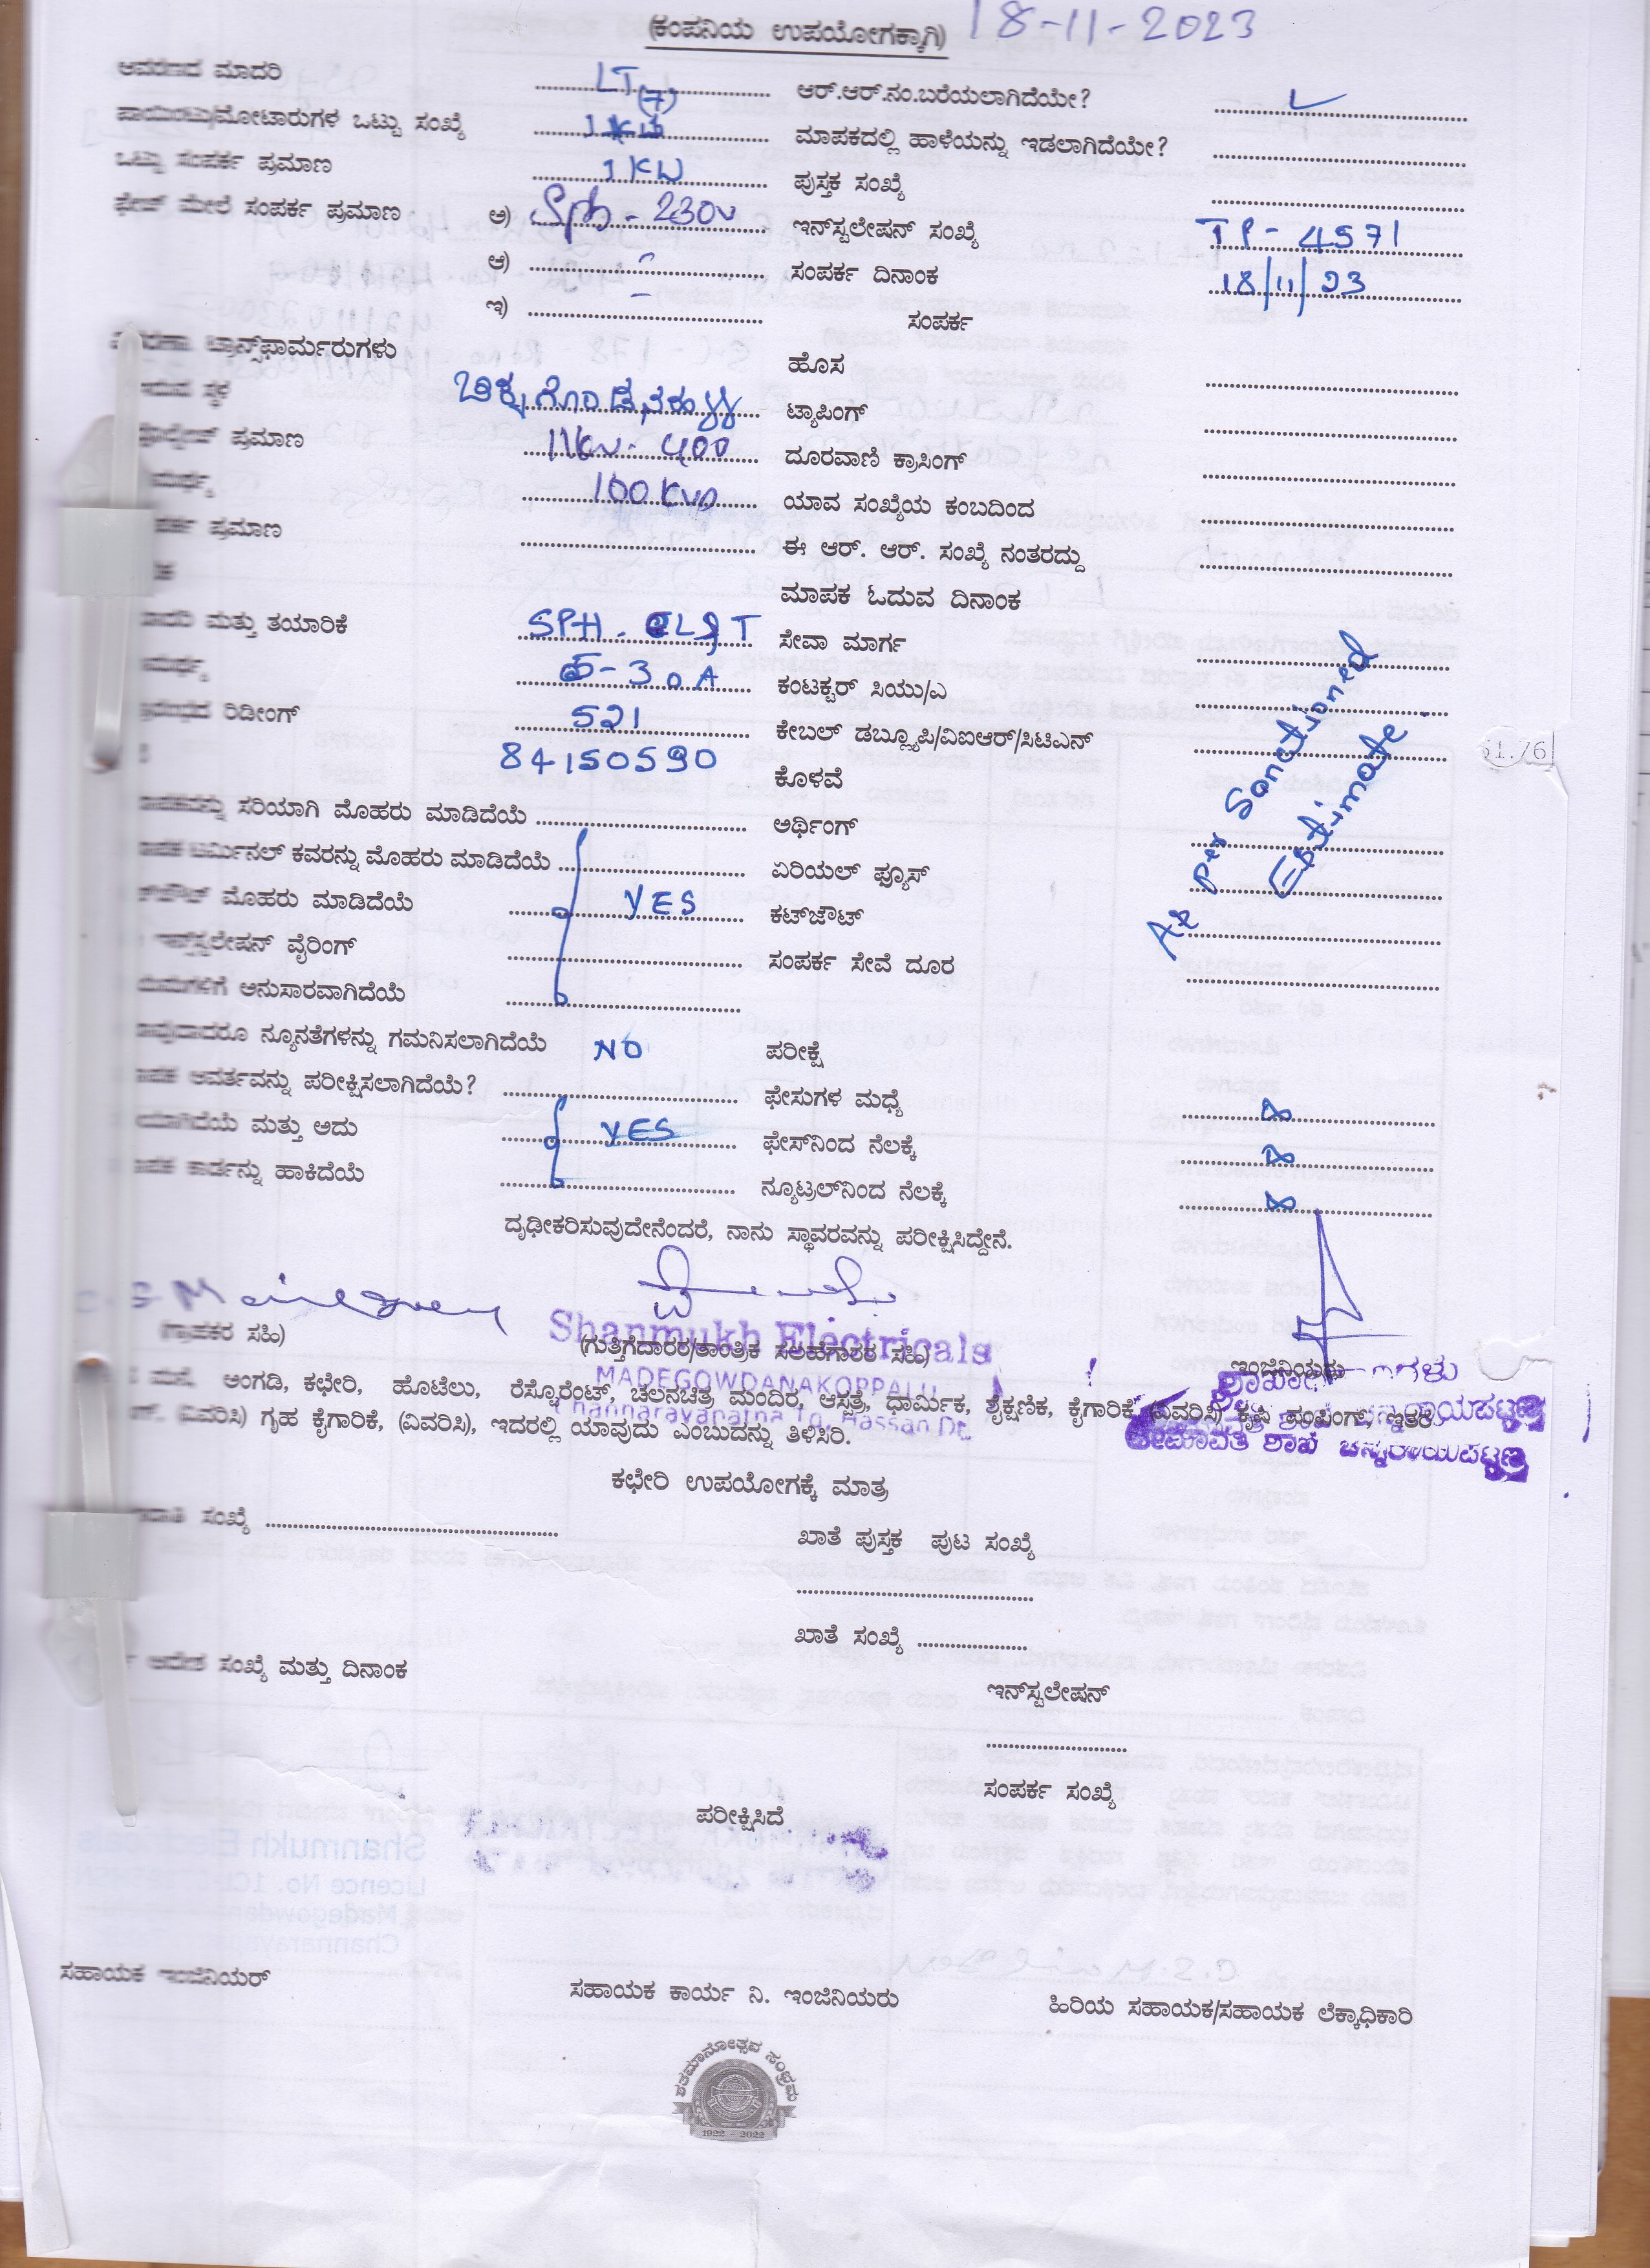 (ಕಂಪನಿಯ ಉಪಯೋಗಕ್ಕಾಗಿ) 18-11-2023
ಆವರಣದ ಮಾದರಿ LT(7) ಆರ್.ಆರ್.ನಂ.ಬರೆಯಲಾಗಿದೆಯೇ?
ಪಾಯಿಂಟು/ಮೋಟಾರುಗಳ ಒಟ್ಟು ಸಂಖ್ಯೆ ಮಾಪಕದಲ್ಲಿ ಹಾಳೆಯನ್ನು ಇಡಲಾಗಿದೆಯೇ?
ಒಟ್ಟು ಸಂಪರ್ಕ ಪ್ರಮಾಣ 1 KW ಪುಸ್ತಕ ಸಂಖ್ಯೆ
ಫೇಜ್ ಮೇಲೆ ಸಂಪರ್ಕ ಪ್ರಮಾಣ ಅ) Sph - 230v ಇನ್‌ಸ್ಟಲೇಷನ್ ಸಂಖ್ಯೆ TP- 4571
ಆ) ಸಂಪರ್ಕ ದಿನಾಂಕ 18/11/23
ಇ) - ಸಂಪರ್ಕ
ಟ್ರಾನ್ಸ್‌ಫಾರ್ಮರುಗಳು ಹೊಸ
ಸ್ಥಳ ಚಿಕ್ಕಗೊಂಡನಹಳ್ಳಿ ಟ್ಯಾಪಿಂಗ್
ಪ್ರಮಾಣ 11Kv- 400 ದೂರವಾಣಿ ಕ್ರಾಸಿಂಗ್
100 Kva ಯಾವ ಸಂಖ್ಯೆಯ ಕಂಬದಿಂದ
ಪ್ರಮಾಣ ಈ ಆರ್. ಆರ್. ಸಂಖ್ಯೆ ನಂತರದ್ದು
ಮಾಪಕ ಓದುವ ದಿನಾಂಕ
ಮತ್ತು ತಯಾರಿಕೆ SPH. L&T ಸೇವಾ ಮಾರ್ಗ
5-30A ಕಂಟಕ್ಟರ್ ಸಿಯು/ಎ
ರಿಡೀಂಗ್ 521 ಕೇಬಲ್ ಡಬ್ಲ್ಯೂಪಿ/ವಿಐಆರ್/ಸಿಟಿಎನ್
84150590 ಕೊಳವೆ
ಸರಿಯಾಗಿ ಮೊಹರು ಮಾಡಿದೆಯೆ ಅರ್ಥಿಂಗ್
ಟರ್ಮಿನಲ್ ಕವರನ್ನು ಮೊಹರು ಮಾಡಿದೆಯೆ ಏರಿಯಲ್ ಫ್ಯೂಸ್
ಮೊಹರು ಮಾಡಿದೆಯೆ YES ಕಟ್‌ಔಟ್
ಇನ್‌ಸ್ಟಲೇಷನ್ ವೈರಿಂಗ್ ಸಂಪರ್ಕ ಸೇವೆ ದೂರ
ಅನುಸಾರವಾಗಿದೆಯೆ
As Per Sanctioned
Estimate
ನ್ಯೂನತೆಗಳನ್ನು ಗಮನಿಸಲಾಗಿದೆಯೆ NO ಪರೀಕ್ಷೆ
ಆವರ್ತವನ್ನು ಪರೀಕ್ಷಿಸಲಾಗಿದೆಯೆ? ಫೇಸುಗಳ ಮಧ್ಯೆ
ಮತ್ತು ಅದು YES ಫೇಸ್‌ನಿಂದ ನೆಲಕ್ಕೆ
ಕಾರ್ಡನ್ನು ಹಾಕಿದೆಯೆ ನ್ಯೂಟ್ರಲ್‌ನಿಂದ ನೆಲಕ್ಕೆ
ದೃಢೀಕರಿಸುವುದೇನೆಂದರೆ, ನಾನು ಸ್ಥಾವರವನ್ನು ಪರೀಕ್ಷಿಸಿದ್ದೇನೆ.
Shanmukh Electricals
(ಗ್ರಾಹಕರ ಸಹಿ) (ಗುತ್ತಿಗೆದಾರರ/ತಾಂತ್ರಿಕ ಸಲಹೆಗಾರರ ಸಹಿ) ಇಂಜಿನಿಯರು
MADEGOWDANAKOPPALU
ಮನೆ, ಅಂಗಡಿ, ಕಛೇರಿ, ಹೊಟೆಲು, ರೆಸ್ಟೊರೆಂಟ್, ಚಲನಚಿತ್ರ ಮಂದಿರ, ಆಸ್ಪತ್ರೆ, ಧಾರ್ಮಿಕ, ಶೈಕ್ಷಣಿಕ, ಕೈಗಾರಿಕೆ (ವಿವರಿಸಿ) ಕೃಷಿ ಪಂಪಿಂಗ್, ಇತರೆ
(ವಿವರಿಸಿ) ಗೃಹ ಕೈಗಾರಿಕೆ, (ವಿವರಿಸಿ), ಇದರಲ್ಲಿ ಯಾವುದು ಎಂಬುದನ್ನು ತಿಳಿಸಿರಿ.
ಶಾಖೆ ಚನ್ನರಾಯಪಟ್ಟಣ
ಕಛೇರಿ ಉಪಯೋಗಕ್ಕೆ ಮಾತ್ರ
ಸಂಖ್ಯೆ ಖಾತೆ ಪುಸ್ತಕ ಪುಟ ಸಂಖ್ಯೆ
ಖಾತೆ ಸಂಖ್ಯೆ
ಆದೇಶ ಸಂಖ್ಯೆ ಮತ್ತು ದಿನಾಂಕ
ಇನ್‌ಸ್ಟಲೇಷನ್
ಸಂಪರ್ಕ ಸಂಖ್ಯೆ
ಪರೀಕ್ಷಿಸಿದೆ
ಸಹಾಯಕ ಇಂಜಿನಿಯರ್ ಸಹಾಯಕ ಕಾರ್ಯ ನಿ. ಇಂಜಿನಿಯರು ಹಿರಿಯ ಸಹಾಯಕ/ಸಹಾಯಕ ಲೆಕ್ಕಾಧಿಕಾರಿ
ಶತಮಾನೋತ್ಸವ ಸಂಭ್ರಮ
1922 - 2022